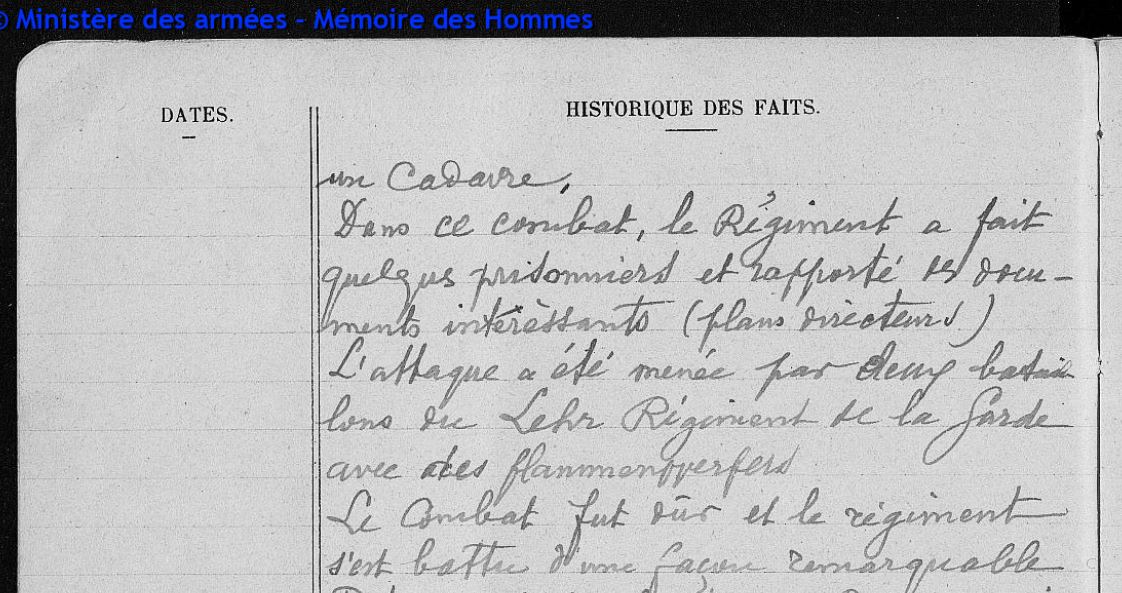 © Ministère des armées - Mémoire des Hommes
DATES.
HISTORIQUE DES FAITS.
un Cadavre.
Dans ce combat, le Régiment a fait
quelques prisonniers et rapporté des docu-
ments intérèssants (plans directeurs)
L'attaque a été menée par deux batail-
lons du Lehr Régiment de la Garde
avec des flammenwerfers
Le Combat fut dûr et le régiment
s'est battu d'une façon remarquable